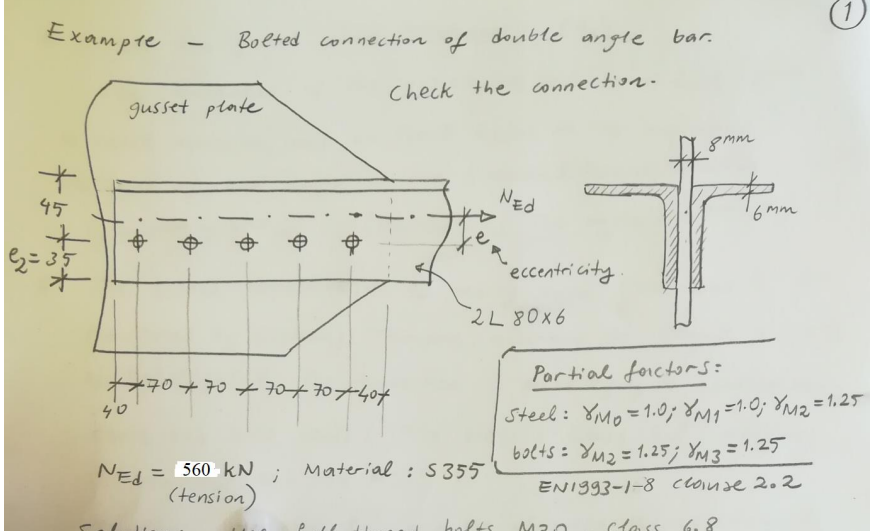 1
Example - Bolted connection of double angle bar.
Check the connection.
gusset plate
8mm
6mm
45
e2=35
NEd
e
eccentricity.
2L 80x6
40 70 70 70 70 40
Partial factors:
Steel: γM0=1.0; γM1=1.0; γM2=1.25
bolts: γM2=1.25; γM3=1.25
EN1993-1-8 clause 2.2
NEd = 560 kN ; Material : S355
(tension)
bolts M20 class 6.8